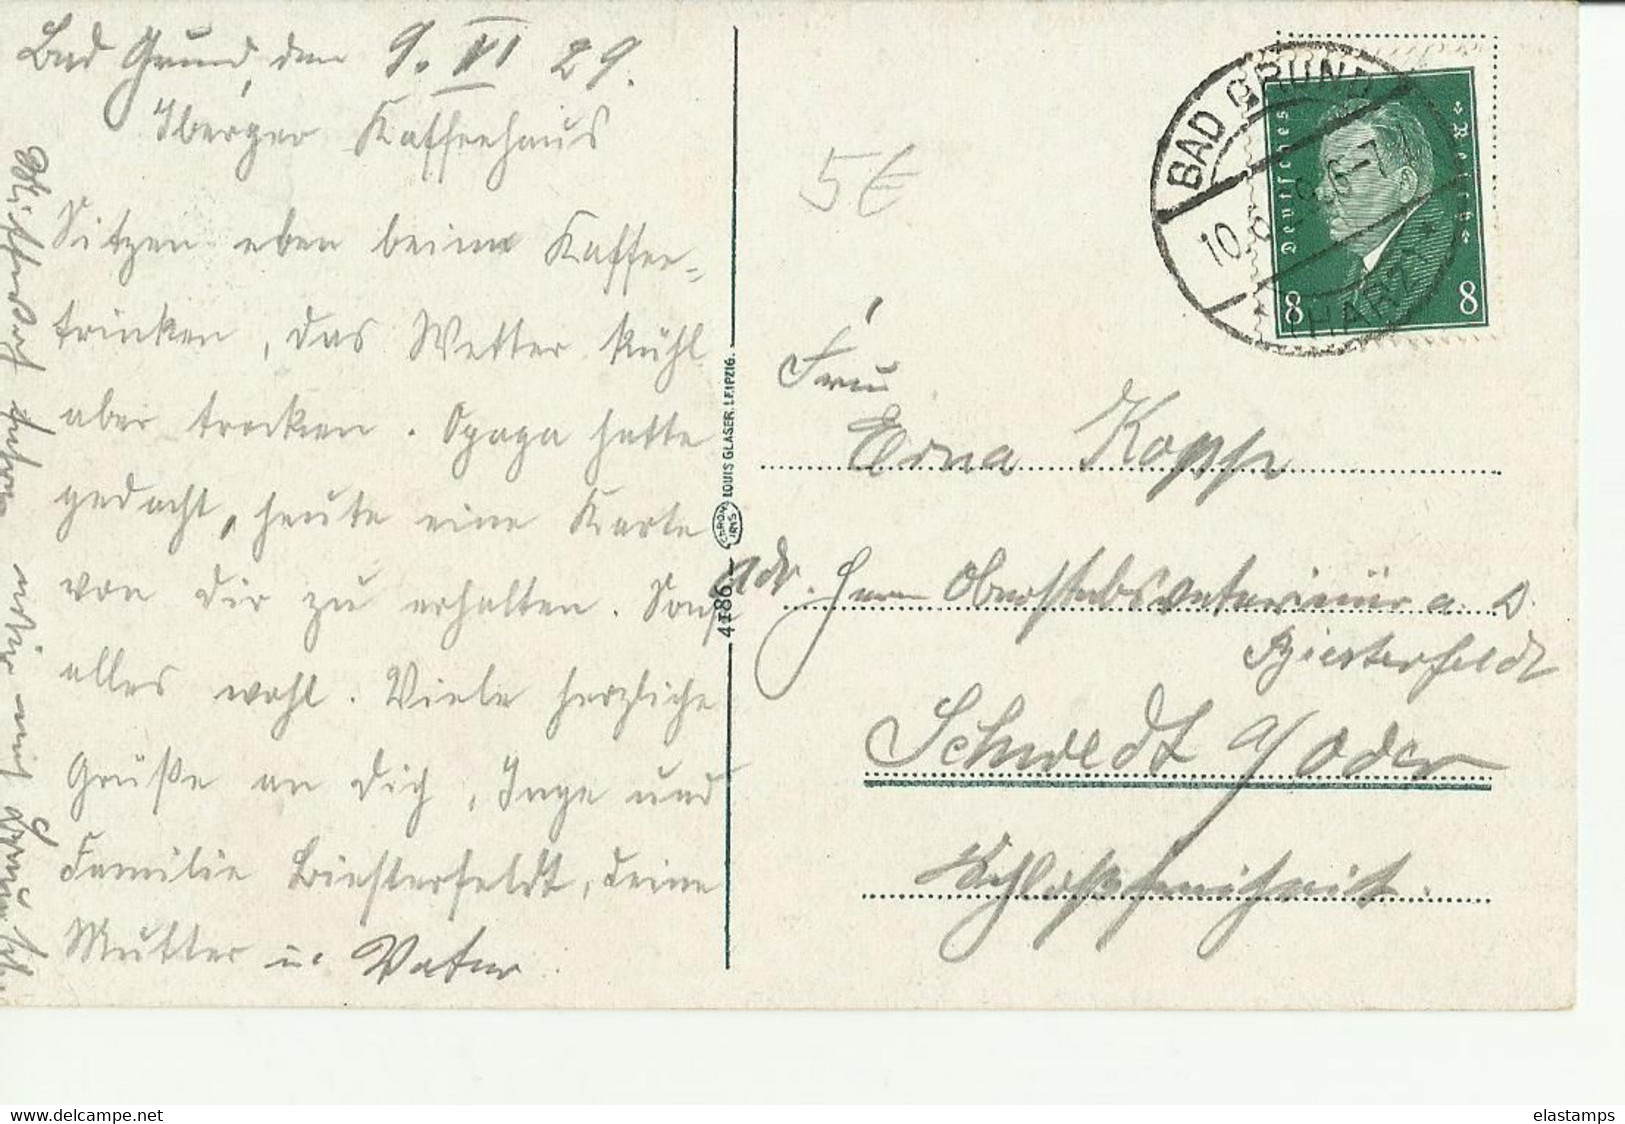 Bad Grund, den 9. VI 29.
Iberger Kaffeehaus
Sitzen eben beim Kaffee-
trinken, das Wetter kühl
aber trocken. Opapa hatte
gedacht, heute eine Karte
von dir zu erhalten. Sonst
alles wohl. Viele herzliche
Grüße an dich, Inge und
Familie Biesterfeldt, deine
Mutter u. Vater.
fahren wir mit
5€
BAD GRUND
(HARZ)
10.6. 6-7
Deutsches Reich
8 8
Frau
Erna Kopp
Adr. Herrn Oberstabsveterinär a. D.
Biesterfeldt
Schwedt a/Oder
Schloßfreiheit.
4186.
CHROM IRIS
LOUIS GLASER, LEIPZIG.
www.delcampe.net
elastamps